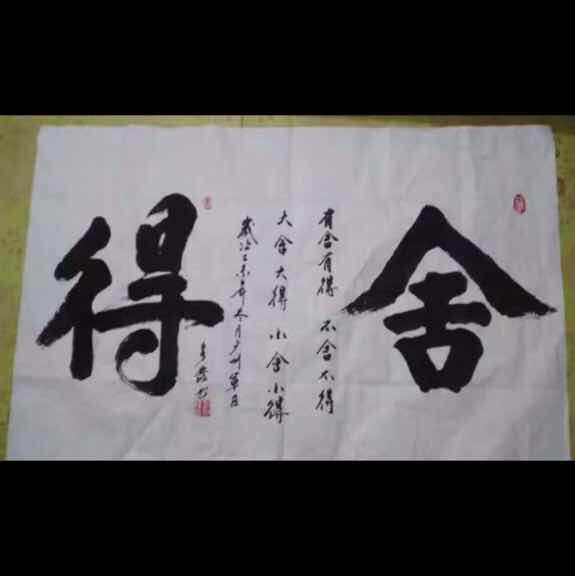 舍
有舍有得 不舍不得
大舍大得 小舍小得
岁次乙未年冬月
得